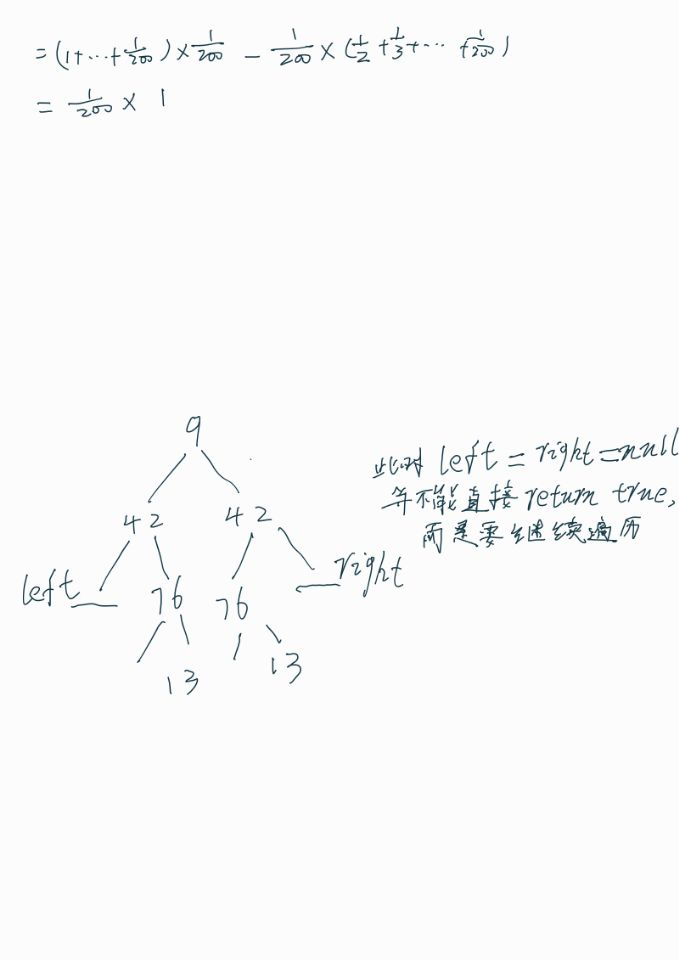 =(1+…+1/200)×1/200 - 1/200×(1/2+1/3+…+1/200)
= 1/200 × 1
9
42 42
left 76 76 right
13 13
此时 left = right = null
并不能直接 return true,
而是要继续遍历